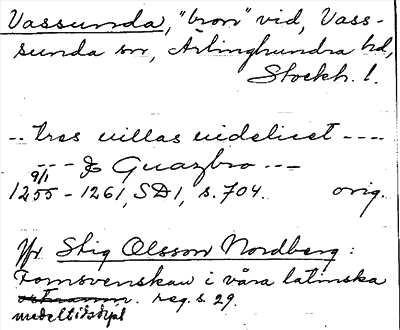 Vassunda, "bron" vid, Vass-
sunda sn, Ärlinghundra hd,
Stockh. l.
-- tres villas videlicet ----
--- & Guazbro ---
9/1
1255 - 1261, SD 1, s. 704. orig.
Jfr. Stig Olsson Nordberg:
Fornsvenskan i våra latinska
reg. s. 29.
medeltidsdipl